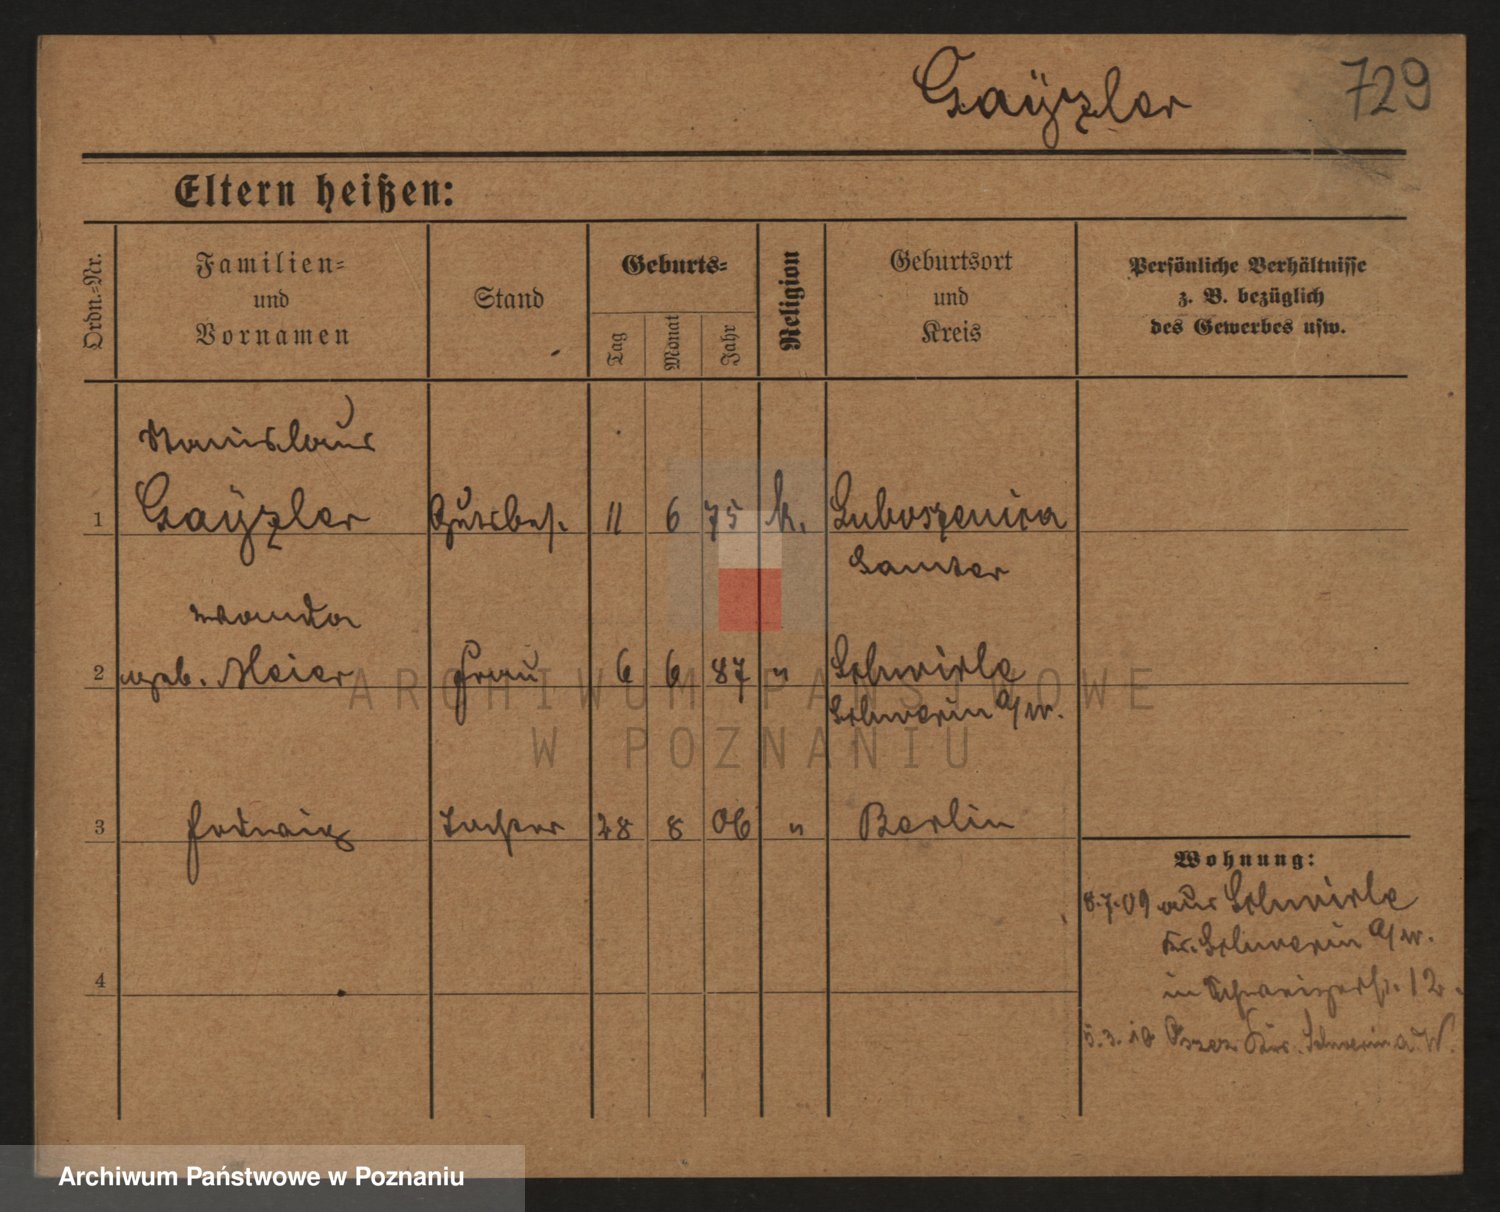 Gaÿzler 729
Eltern heißen:
Ordn.-Nr.
Familien-
und
Vornamen
Stand
Geburts-
Tag
Monat
Jahr
Religion
Geburtsort
und
Kreis
Persönliche Verhältnisse
z. B. bezüglich
des Gewerbes usw.
Stanislaus
1 Gaÿzler Gutsbes. 11 6 75 k. Luboszenica
Samter
Wanda
2 geb. Meier Frau 6 6 87 " Schwirle
Schwerin a/W.
3 Hedwig Tochter 28 8 06 " Berlin
Wohnung:
8.7.09 aus Schwirle
Kr. Schwerin a/W.
in 12
4
5.3.10 Schwerin a. W.
ARCHIWUM PAŃSTWOWE
W POZNANIU
Archiwum Państwowe w Poznaniu